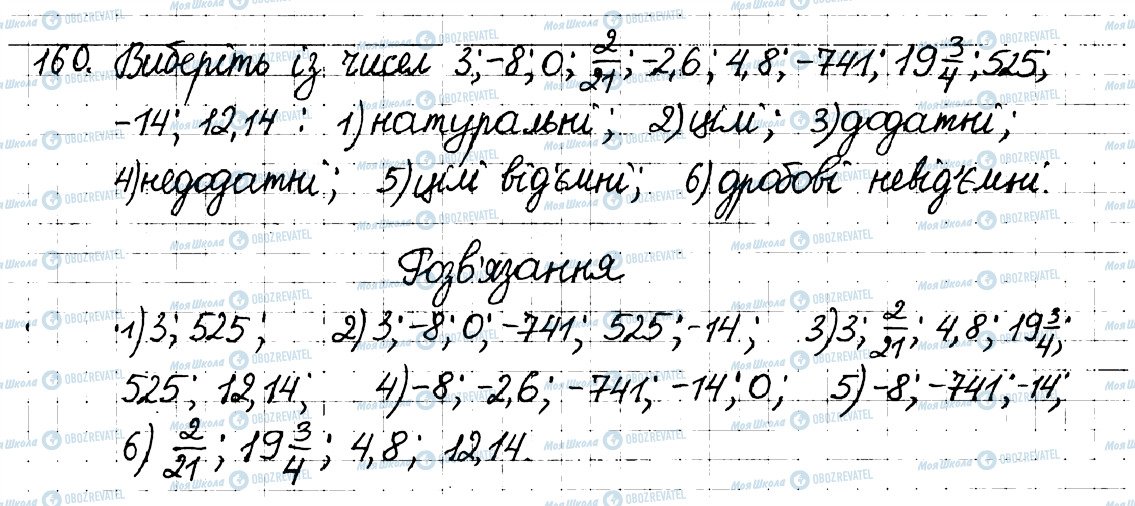 160. Виберіть із чисел 3; -8; 0; 2/21; -2,6; 4,8; -741; 19 3/4; 525;
-14; 12,14 : 1) натуральні; 2) цілі; 3) додатні;
4) недодатні; 5) цілі від'ємні; 6) дробові невід'ємні.
Розв'язання
1) 3; 525; 2) 3; -8; 0; -741; 525; -14; 3) 3; 2/21; 4,8; 19 3/4;
525; 12,14; 4) -8; -2,6; -741; -14; 0; 5) -8; -741; -14;
6) 2/21; 19 3/4; 4,8; 12,14.